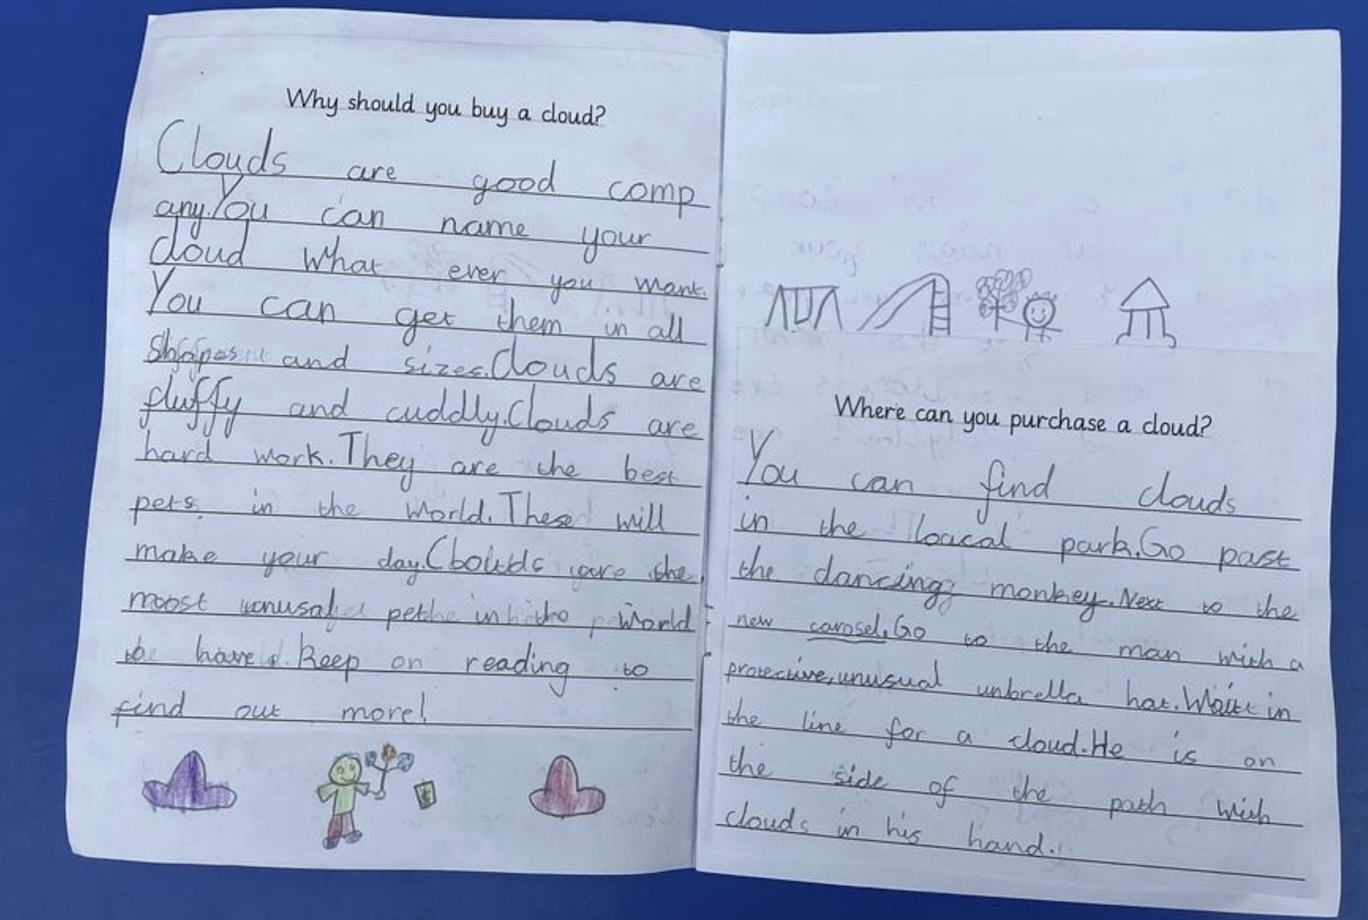 Why should you buy a cloud?
Clouds are good comp
any. You can name your
cloud what ever you want.
You can get them in all
shapes and sizes. Clouds are
fluffy and cuddly. Clouds are
hard work. They are the best
pets in the world. These will
make your day. Clouds are the
most unusal pet in the world
to have. Keep on reading to
find out more!
Where can you purchase a cloud?
You can find clouds
in the loacal park. Go past
the dancing monkey. Next to the
new carosel. Go to the man with a
protective, unusual unbrella hat. Wait in
the line for a cloud. He is on
the side of the path with
clouds in his hand.